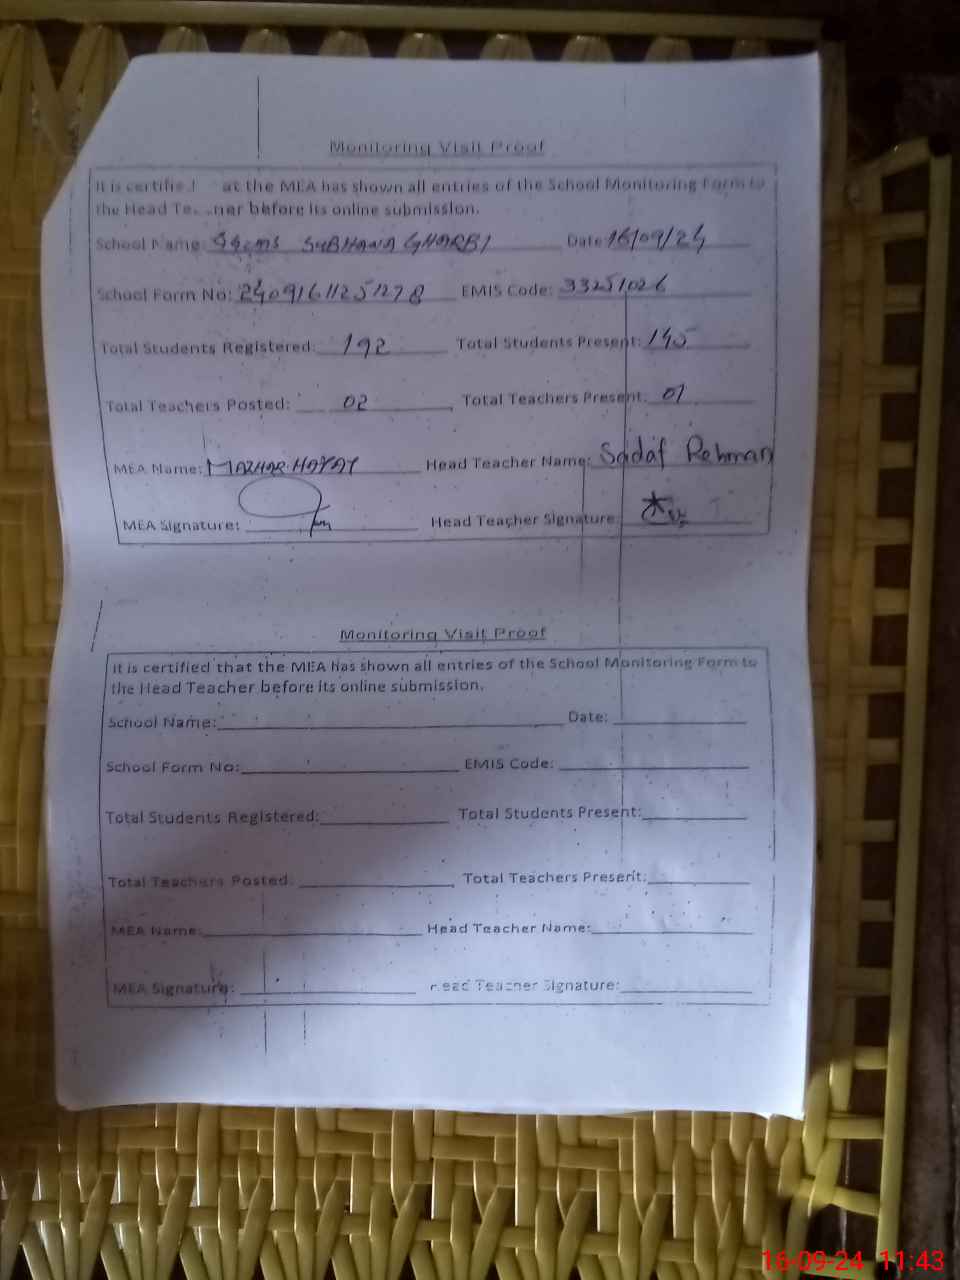 Monitoring Visit Proof
It is certified at the MEA has shown all entries of the School Monitoring Form to
the Head Teacher before its online submission.
School Name: SUBHANA GHARBI Date 16/09/24
School Form No: 24091611251278 EMIS Code: 33251026
Total Students Registered: 192 Total Students Present: 145
Total Teachers Posted: 02 Total Teachers Present: 01
MEA Name: MAZHAR HAYAT Head Teacher Name: Sadaf Rehman
MEA Signature: Head Teacher Signature:
Monitoring Visit Proof
It is certified that the MEA has shown all entries of the School Monitoring Form to
the Head Teacher before its online submission.
School Name: Date:
School Form No: EMIS Code:
Total Students Registered: Total Students Present:
Total Teachers Posted: Total Teachers Present:
MEA Name: Head Teacher Name:
MEA Signature: Head Teacher Signature:
16-09-24 11:43